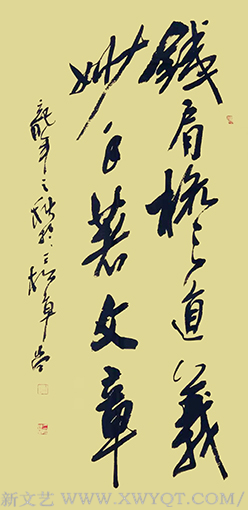 鐵肩擔道義
妙手著文章
龍年之秋
新文艺 / WWW.XWYQT.COM/